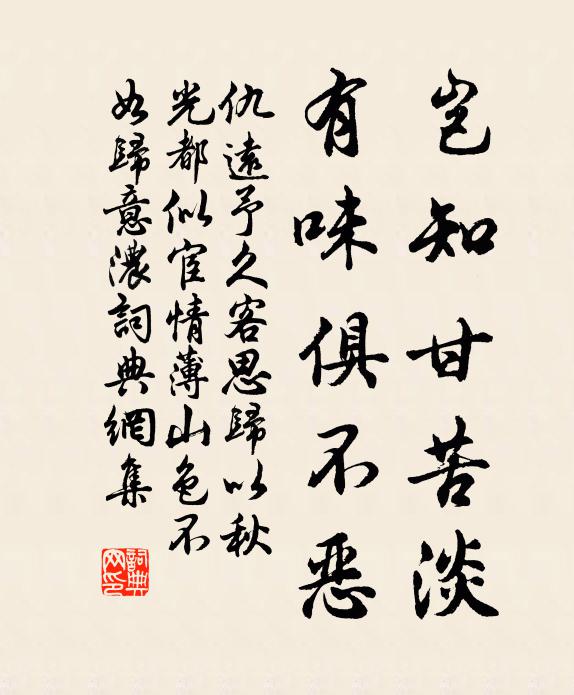 岂知甘苦淡
有味俱不恶
仇遠予久客思歸以秋
光都似宦情薄山色不
如歸意濃詞典網集
詞典
网印